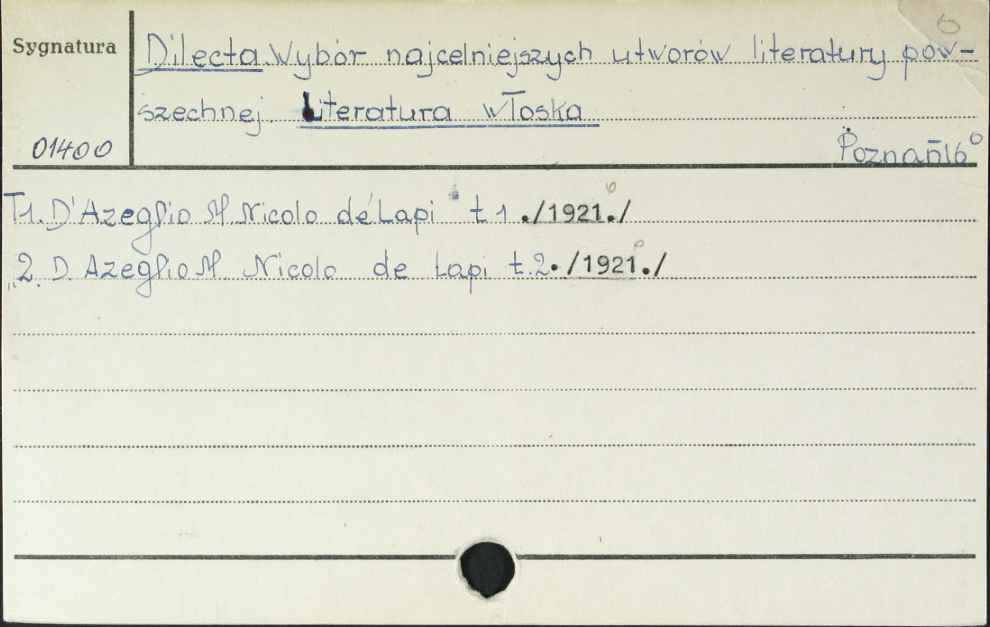 6
Sygnatura
Dilecta. Wybór najcelniejszych utworów literatury pow-
szechnej. Literatura włoska
01400
Poznań 16°
T1. D'Azeglio M. Nicolo de Lapi t 1./1921./
„2. D. Azeglio M. Nicolo de Lapi t.2./1921./